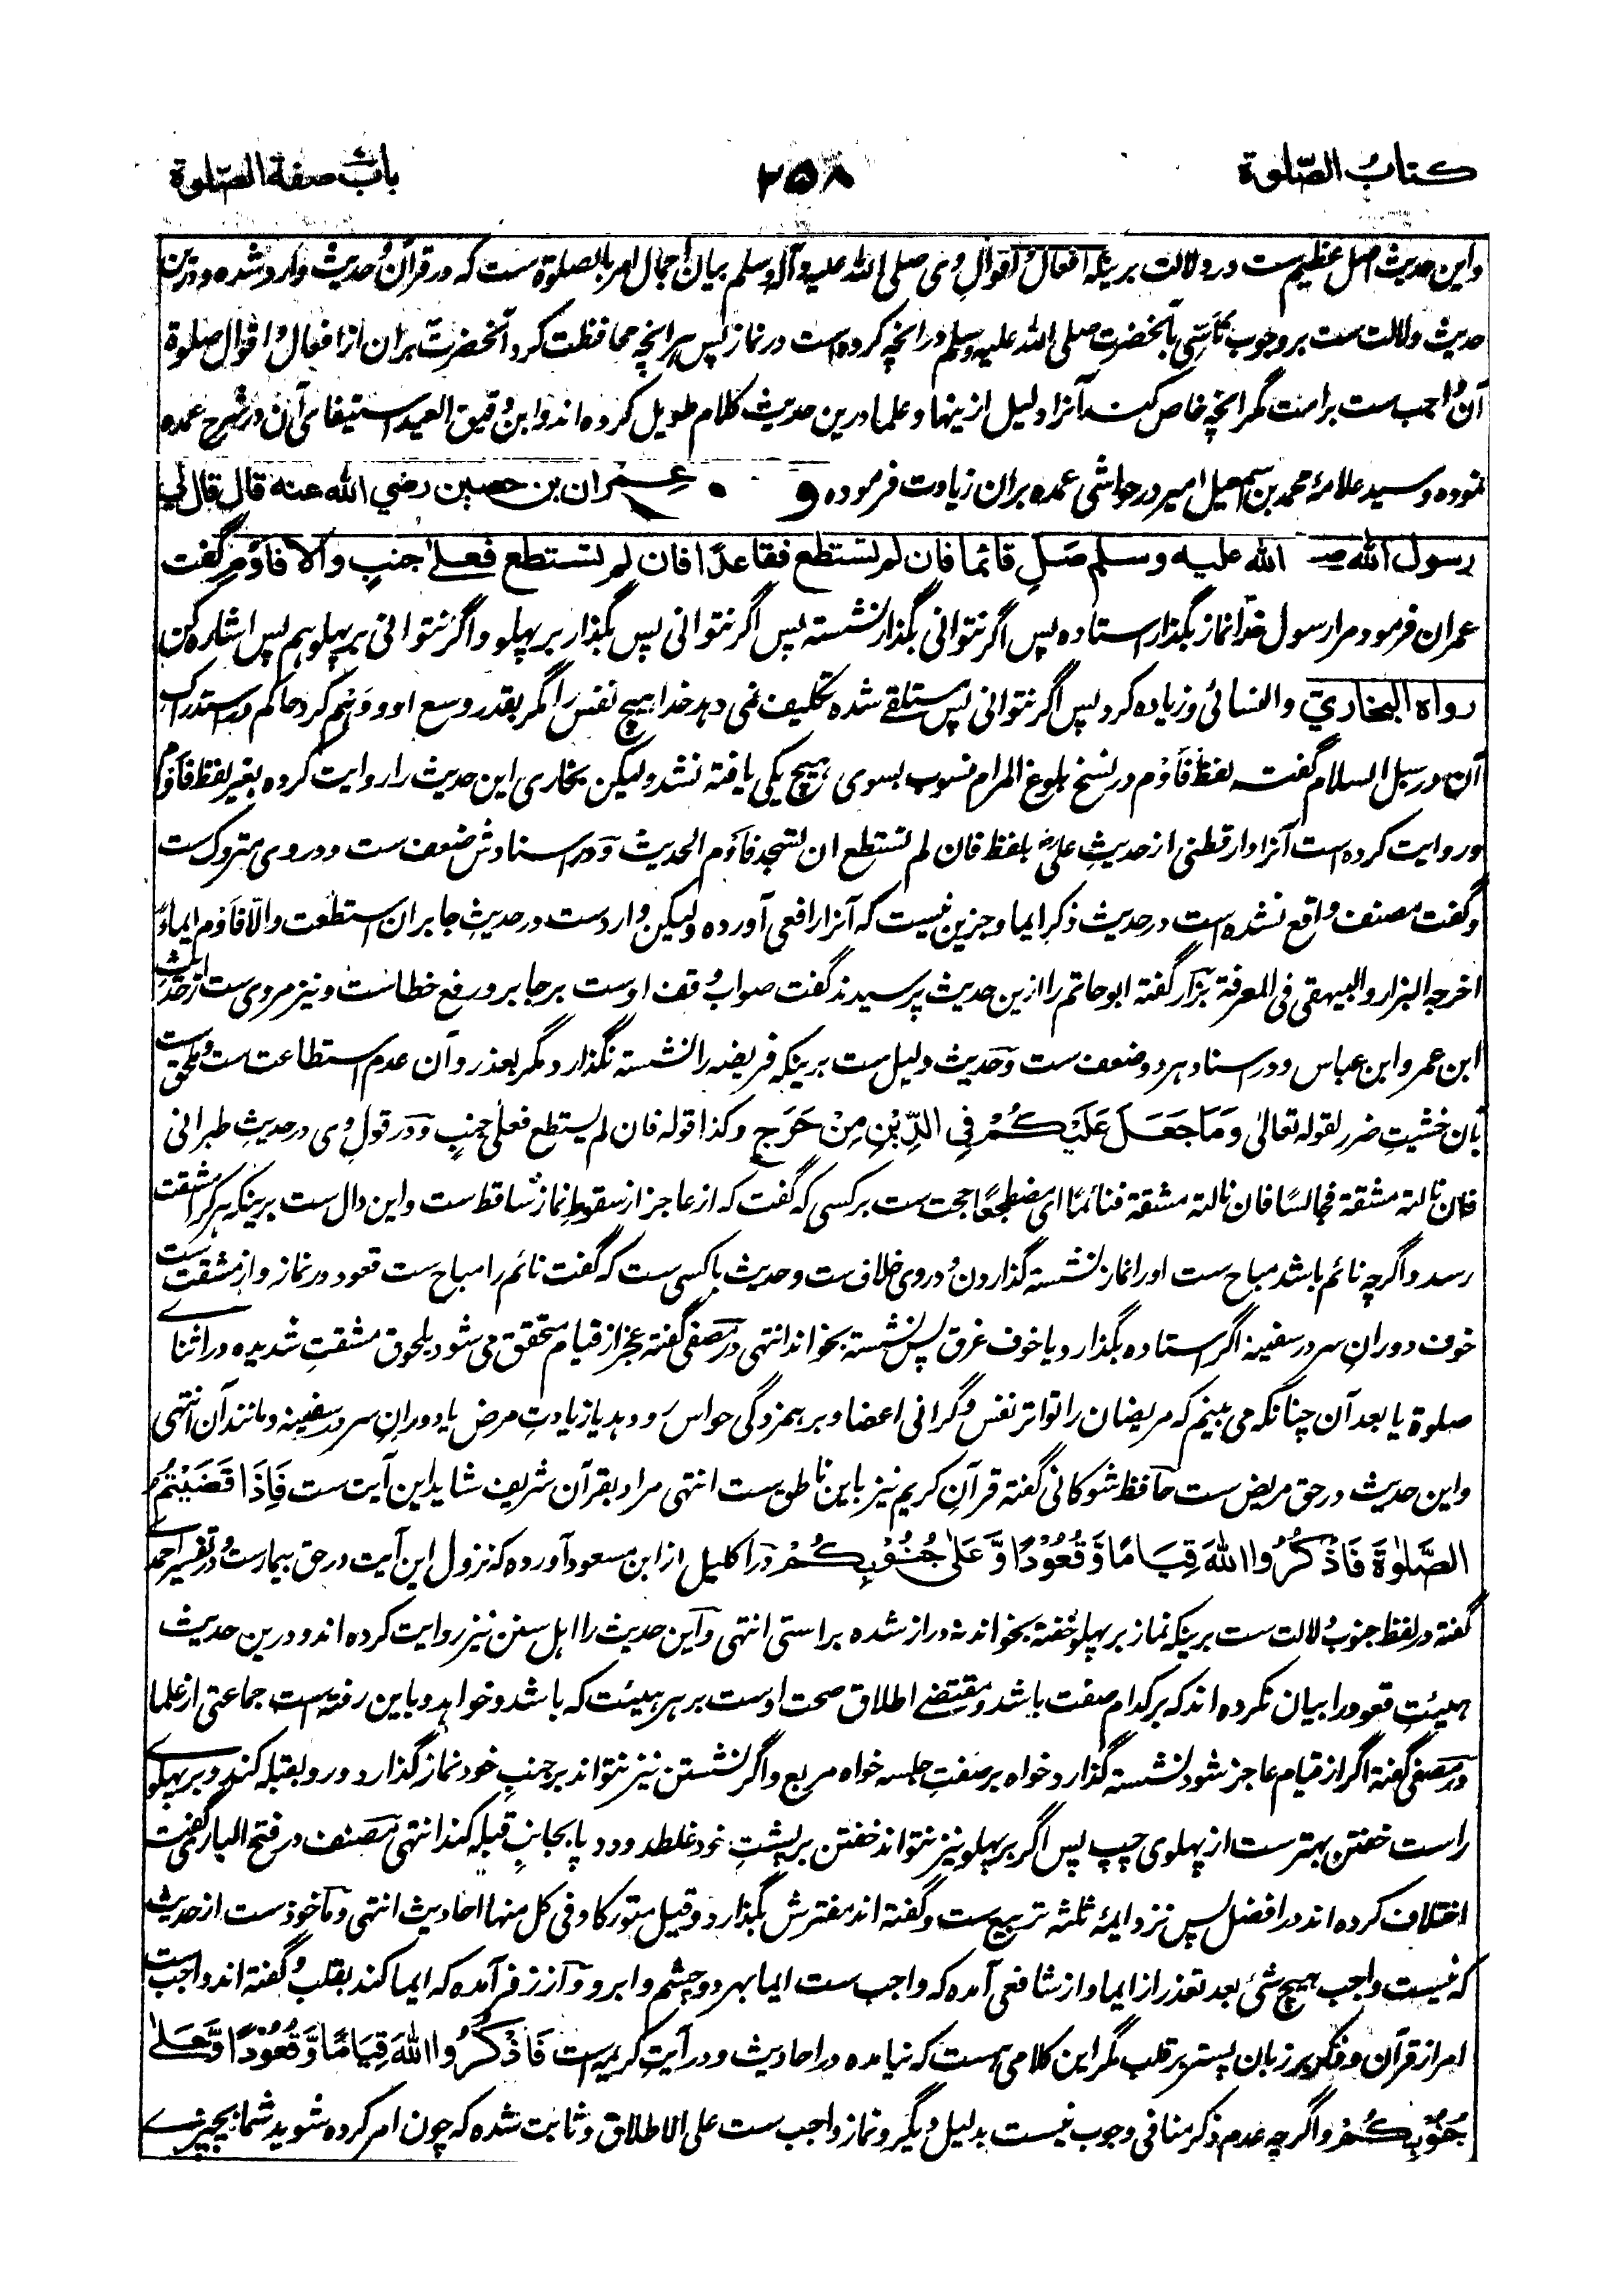 كتابُ الصّلوة
۲۵۸
بابُ صفة الصّلوة
واین حدیث اصل عظیم ست در دلالت برینکه افعال و اقوالِ وی صلی الله علیه وآله وسلم بیان اجمال امر بالصلوة ست که در قرآن و حدیث وارد شده و درین
حدیث دلالت ست بر وجوب تأسّی بآنحضرت صلی الله علیه وسلم در انچه کرده است در نماز پس هر انچه محافظت کرد آنحضرت بران از افعال و اقوال صلوة
آن واجب ست بر امت مگر انچه خاص کند آنرا دلیل ازینها و علما درین حدیث کلام طویل کرده اند و ابن دقیق العید استیفای آن در شرح عمده
نموده و سید علامهٔ محمد بن اسمعیل امیر در حواشی عمده بران زیادت فرموده و عمران بن حصین رضي الله عنه قال قال لي
رسول الله صلى الله علیه وسلم صَلِّ قائما فان لم تستطع فقاعدًا فان لم تستطع فعلی جنبٍ والا فاَوْمِ گفت
عمران فرمود مرا رسول خدا نماز بگذار استاده پس اگر نتوانی بگذار نشسته پس اگر نتوانی پس بگذار بر پهلو و اگر نتوانی بر پهلو هم پس اشاره کن
رواه البخاري والنسائی و زیاده کرد پس اگر نتوانی پس مستلقے شده تکلیف نمی دهد خدا هیچ نفس را مگر بقدر وسع او و وهم کرد حاکم در استدراک
آن در سبل السلام گفت لفظ فَاَوْم در نسخ بلوغ المرام منسوب بسوی هیچ یکی یافته نشد ولیکن بخاری این حدیث را روایت کرده بغیر لفظ فاَوْم
و روایت کرده است آنرا دارقطنی از حدیثِ علی رض بلفظ فان لم تستطع ان تسجد فاَوْم الحدیث و در اسنادش ضعف ست و در وی متروک ست
و گفت مصنف واقع نشده است در حدیث ذکرِ ایما و جزین نیست که آنرا رافعی آورده ولیکن وارد ست در حدیثِ جابر ان استطعت والّا فاَوْم ایماءً
اخرجه البزار والبیهقی فی المعرفة بزّار گفته ابوحاتم را ازین حدیث پرسیدند گفت صواب وقف اوست بر جابر و رفع خطاست و نیز مروی ست از حدیث
ابن عمر و ابن عباس و در اسناد هر دو ضعف ست و حدیث دلیل ست برینکه فریضه را نشسته نگذارد مگر بعذر و آن عدم استطاعت ست و ملحق ست
بآن خشیتِ ضرر لقوله تعالیٰ وَمَا جَعَلَ عَلَيْكُمْ فِي الدِّيْنِ مِنْ حَرَجٍ وکذا قوله فان لم یستطع فعلی جنبٍ و در قولِ وی در حدیثِ طبرانی
فان نالته مشقة فجالسًا فان نالته مشقة فنائمًا ای مضطجعًا حجت ست بر کسی که گفت که از عاجز از سقوطِ نماز ساقط ست واین دال ست برینکه هر کرا مشقت
رسد و اگرچه نائم باشد مباح ست او را نماز نشسته گذاردن و در وی خلاف ست و حدیث با کسی ست که گفت نائم را مباح ست قعود در نماز و از مشقت ست
خوف دورانِ سر در سفینه اگر استاده بگذارد یا خوف غرق پس نشسته بخواند انتهی در مصفی گفته عجز از قیام متحقق می شود بلحوق مشقتِ شدیده در اثنائے
صلوة یا بعد آن چنانکه می بینم که مریضان را تواتر نفس و گرانی اعضا و برهمزدگی حواس رو دهد یا زیادتِ مرض یا دورانِ سر در سفینه و مانند آن انتهی
واین حدیث در حق مریض ست حافظ شوکانی گفته قرآن کریم نیز باین ناطق ست انتهی مراد بقرآن شریف شاید این آیت ست فَاِذَا قَضَيْتُمُ
الصَّلٰوةَ فَاذْكُرُوا اللهَ قِيَامًا وَّقُعُوْدًا وَّعَلٰى جُنُوْبِكُمْ در اکلیل از ابن مسعود آورده که نزول این آیت در حق بیمار ست و در تفسیر احمدے
گفته در لفظ جنوب دلالت ست برینکه نماز بر پهلو خفته بخواند نه دراز شده براستی انتهی واین حدیث را اهل سنن نیز روایت کرده اند و درین حدیث
هیئتِ قعود را بیان نکرده اند که بر کدام صفت باشد و مقتضے اطلاق صحت اوست بر هر هیئت که باشد و خواهد و باین رفته است جماعتی از علما
در مصفی گفته اگر از قیام عاجز شود نشسته گذارد خواه بر صفتِ جلسه خواه مربع و اگر نشستن نیز نتواند بر جنبِ خود نماز گذارد و رو بقبله کند و بر پهلوے
راست خفتن بهتر ست از پهلوی چپ پس اگر بر پهلو نیز نتواند خفتن بر پشتِ خود غلطد و دو پا بجانبِ قبله کند انتهی مصنف در فتح الباری گفت
اختلاف کرده اند در افضل پس نزد ایمهٔ ثلثه تربیع ست و گفته اند مفترش بگذارد و قیل متورکا وفی کل منها احادیث انتهی و ماخوذ ست از حدیث
که نیست واجب هیچ شئ بعد تعذر از ایما و از شافعی آمده که واجب ست ایما بهر دو چشم و ابرو و از زفر آمده که ایما کند بقلب و گفته اند واجب ست
امرار قرآن و ذکر بر زبان پستر بر قلب مگر این کلامی هست که نیامده در احادیث و در آیت کریمه است فَاذْكُرُوا اللهَ قِيَامًا وَّقُعُوْدًا وَّعَلٰى
جُنُوْبِكُمْ و اگرچه عدم ذکر منافی وجوب نیست بدلیل دیگر و نماز واجب ست علی الاطلاق و ثابت شده که چون امر کرده شوید شما بچیزے